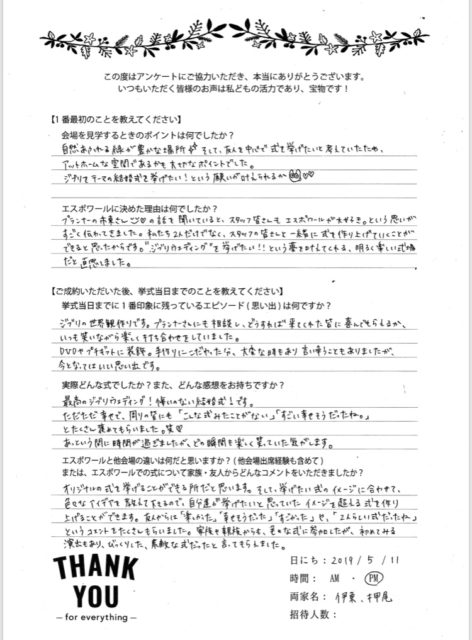 この度はアンケートにご協力いただき、本当にありがとうございます。
いつもいただく皆様のお声は私どもの活力であり、宝物です！
【1番最初のことを教えてください】
会場を見学するときのポイントは何でしたか？
自然あふれる緑が豊かな場所 そして、友人を中心で式を挙げたいと考えていたため、
アットホームな空間であるかも大切なポイントでした。
ジブリをテーマの結婚式を挙げたい！という願いが叶えられるか
エスポワールに決めた理由は何でしたか？
プランナーの さん の話を聞いていると、スタッフ皆さんも エスポワールが大好き。という思いが
すごく伝わってきました。私たち2人だけでなく、スタッフの皆さんと一緒に式を作り上げていくことが
できると思ったからです。"ジブリウェディング"を挙げたい！！という夢を叶えてくれる、明るく楽しい式場
だと直感しました。
【ご成約いただいた後、挙式当日までのことを教えてください】
挙式当日までに1番印象に残っているエピソード（思い出）は何ですか？
ジブリの世界観作りです。プランナーさんにも相談し、どうすれば来てくれた皆に喜んでもらえるか、
いつも笑いながら楽しく打ち合わせをしていました。
DVDやプチギフトに装飾。手作りにこだわった分、大変な時もあり言い争うこともありましたが、
今となってはいい思い出です。
実際どんな式でしたか？また、どんな感想をお持ちですか？
最高のジブリウェディング！悔いのない結婚式！です。
ただただ幸せで、周りの皆にも「こんな式みたことがない」「すごい幸せそうだったね。」
とたくさん褒めてもらいました。笑♡
あっという間に時間が過ぎましたが、どの瞬間も楽しく笑っていた気がします。
エスポワールと他会場の違いは何だと思いますか？(他会場出席経験も含めて）
または、エスポワールでの式について家族・友人からどんなコメントをいただきましたか？
オリジナルの式を挙げることができる所だと思います。そして、挙げたい式のイメージに合わせて、
色々なアイデアを 下さるので、自分達が挙げたいと思っていたイメージを超える式を作り
上げることができます。友人からは「楽しかった」「幸せそうだった」「すごかった」や、「2人らしい式だったね」
というコメントをたくさんもらいました。家族や親族からも、色々な式に参加したが、初めてみる
演出もあり、びっくりした、素敵な式だったと言ってもらえました。
THANK
YOU
— for everything —
日にち：2019 / 5 / 11
時間： AM ・ PM
両家名：伊東、押尾
招待人数：